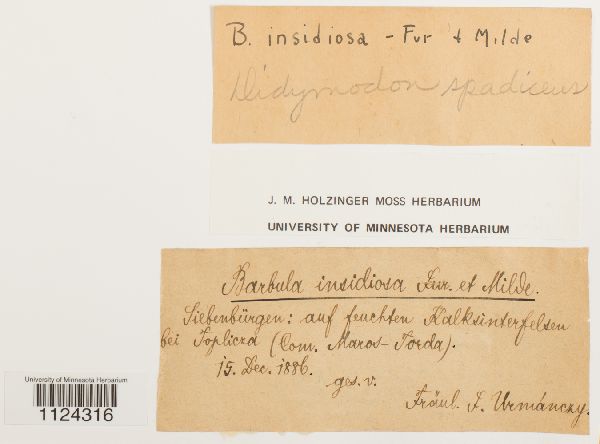 B. insidiosa - Fur & Milde
Didymodon spadiceus
J. M. HOLZINGER MOSS HERBARIUM
UNIVERSITY OF MINNESOTA HERBARIUM
Barbula insidiosa Fur. et Milde.
Siebenbürgen: auf feuchten Kalksinterfelsen
bei Toplicza (Com. Maros-Torda).
15. Dec. 1886.
ges. v.
Fräul. F. Urmánczy.
University of Minnesota Herbarium
1124316